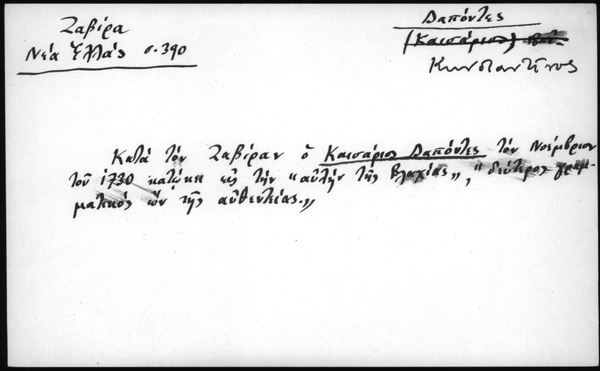 Ζαβίρα
Νέα Ἑλλάς σ. 390
Δαπόντες
(Καισάριος)
Κωνσταντῖνος
Κατά τόν Ζαβίραν ὁ Καισάριος Δαπόντες τόν Νοέμβριον
τοῦ 1730 κατώκει εἰς τήν "αὐλήν τῆς Βλαχίας„, "δεύτερος γραμ-
ματικός ὤν τῆς αὐθεντείας.„